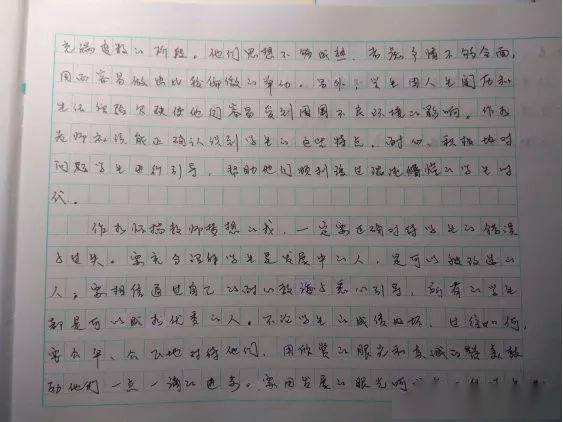 充满变数的阶段。他们思想不够成熟,考虑事情不够全面,
因而容易做出比较偏激的举动。另外,学生因人生阅历和
生活经验欠缺使他们容易受到周围不良环境的影响。作为
老师和该能正确认识到学生的这些特点,耐心、积极地对
问题学生进行引导,帮助他们顺利渡过懵懂的学生时
代。
作为怀揣教师梦想的我,一定要正确对待学生的错误
与过失。要充分理解学生是发展中的人,是可以被改造的
人。要相信通过自己的耐心教诲与悉心引导,所有的学生
都是可以成为优秀的人。不论学生的成绩好坏,过往如何,
要公平、公正地对待他们,用欣赏的眼光和真诚的赞美鼓
励他们一点一滴的进步。要用发展的眼光